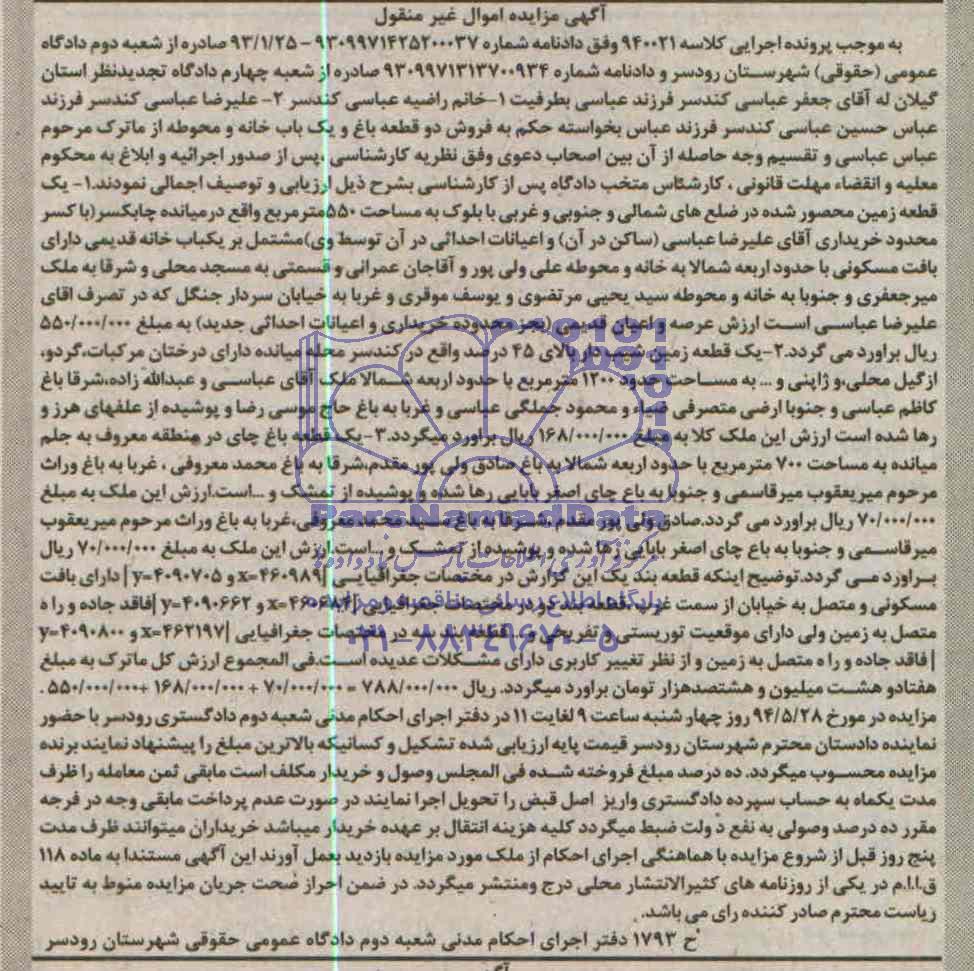 آگهی مزایده اموال غیر منقول
به موجب پرونده اجرایی کلاسه ۹۴۰۰۲۱ وفق دادنامه شماره ۹۳۰۹۹۷۱۴۲۵۲۰۰۰۳۷ – ۹۳/۱/۲۵ صادره از شعبه دوم دادگاه
عمومی (حقوقی) شهرستان رودسر و دادنامه شماره ۹۳۰۹۹۷۱۳۱۳۷۰۰۹۳۴ صادره از شعبه چهارم دادگاه تجدیدنظر استان
گیلان له آقای جعفر عباسی کندسر فرزند عباسی بطرفیت ۱-خانم راضیه عباسی کندسر ۲- علیرضا عباسی کندسر فرزند
عباس حسین عباسی کندسر فرزند عباس بخواسته حکم به فروش دو قطعه باغ و یک باب خانه و محوطه از ماترک مرحوم
عباس عباسی و تقسیم وجه حاصله از آن بین اصحاب دعوی وفق نظریه کارشناسی ،پس از صدور اجرائیه و ابلاغ به محکوم
معلیه و انقضاء مهلت قانونی ، کارشناس منتخب دادگاه پس از کارشناسی بشرح ذیل ارزیابی و توصیف اجمالی نمودند.۱- یک
قطعه زمین محصور شده در ضلع های شمالی و جنوبی و غربی با بلوک به مساحت ۵۵۰مترمربع واقع درمیانده چابکسر(با کسر
محدود خریداری آقای علیرضا عباسی (ساکن در آن) و اعیانات احداثی در آن توسط وی)مشتمل بر یکباب خانه قدیمی دارای
بافت مسکونی با حدود اربعه شمالا به خانه و محوطه علی ولی پور و آقاجان عمرانی و قسمتی به مسجد محلی و شرقا به ملک
میرجعفری و جنوبا به خانه و محوطه سید یحیی مرتضوی و یوسف موقری و غربا به خیابان سردار جنگل که در تصرف اقای
علیرضا عباسی است ارزش عرصه و اعیان قدیمی (بجز محدوده خریداری و اعیانات احداثی جدید) به مبلغ ۵۵۰/۰۰۰/۰۰۰
ریال براورد می گردد.۲-یک قطعه زمین شیب دار بالای ۴۵ درصد واقع در کندسر محله میانده دارای درختان مرکبات،گردو،
ازگیل محلی،و ژاپنی و ... به مساحت حدود ۱۲۰۰ مترمربع با حدود اربعه شمالا ملک آقای عباسی و عبدالله زاده،شرقا باغ
کاظم عباسی و جنوبا ارضی متصرفی ضیاء و محمود جملگی عباسی و غربا به باغ حاج موسی رضا و پوشیده از علفهای هرز و
رها شده است ارزش این ملک کلا به مبلغ ۱۶۸/۰۰۰/۰۰۰ ریال براورد میگردد.۳-یک قطعه باغ چای در منطقه معروف به جلم
میانده به مساحت ۷۰۰ مترمربع با حدود اربعه شمالا به باغ صادق ولی پور مقدم،شرقا به باغ محمد معروفی ، غربا به باغ وراث
مرحوم میریعقوب میرقاسمی و جنوبا به باع چای اصغر بابایی رها شده و پوشیده از تمشک و ...است.ارزش این ملک به مبلغ
۷۰/۰۰۰/۰۰۰ ریال براورد می گردد.صادق ولی پور مقدم ،شرقا به باغ سید محمد معروفی،غربا به باغ وراث مرحوم میریعقوب
میرقاسمی و جنوبا به باع چای اصغر بابایی رها شده و پوشیده از تمشک و ...است.ارزش این ملک به مبلغ ۷۰/۰۰۰/۰۰۰ ریال
براورد می گردد.توضیح اینکه قطعه بند یک این گزارش در مختصات جغرافیایی |x=۴۶۰۹۸۹ و y=۴۰۹۰۷۰۵ | دارای بافت
مسکونی و متصل به خیابان از سمت غرب ،قطعه بند دو در مختصات جغرافیایی |x=۴۶۰۶۸۴ و y=۴۰۹۰۶۶۲ |فاقد جاده و را ه
متصل به زمین ولی دارای موقعیت توریستی و تفریحی و ... قطعه بند سه در مختصات جغرافیایی |x=۴۶۲۱۹۷ و y=۴۰۹۰۸۰۰
| فاقد جاده و را ه متصل به زمین و از نظر تغییر کاربری دارای مشکلات عدیده است.فی المجموع ارزش کل ماترک به مبلغ
هفتادو هشت میلیون و هشتصدهزار تومان براورد میگردد. ریال ۷۸۸/۰۰۰/۰۰۰ = ۷۰/۰۰۰/۰۰۰ + ۱۶۸/۰۰۰/۰۰۰ +۵۵۰/۰۰۰/۰۰۰ .
مزایده در مورخ ۹۴/۵/۲۸ روز چهار شنبه ساعت ۹ لغایت ۱۱ در دفتر اجرای احکام مدنی شعبه دوم دادگستری رودسر با حضور
نماینده دادستان محترم شهرستان رودسر قیمت پایه ارزیابی شده تشکیل و کسانیکه بالاترین مبلغ را پیشنهاد نمایند برنده
مزایده محسوب میگردد. ده درصد مبلغ فروخته شده فی المجلس وصول و خریدار مکلف است مابقی ثمن معامله را ظرف
مدت یکماه به حساب سپرده دادگستری واریز اصل قبض را تحویل اجرا نمایند در صورت عدم پرداخت مابقی وجه در فرجه
مقرر ده درصد وصولی به نفع دولت ضبط میگردد کلیه هزینه انتقال بر عهده خریدار میباشد خریداران میتوانند ظرف مدت
پنج روز قبل از شروع مزایده با هماهنگی اجرای احکام از ملک مورد مزایده بازدید بعمل آورند این آگهی مستندا به ماده ۱۱۸
ق.ا.ا.م در یکی از روزنامه های کثیرالانتشار محلی درج ومنتشر میگردد. در ضمن احراز صحت جریان مزایده منوط به تایید
ریاست محترم صادر کننده رای می باشد.
ح ۱۷۹۳ دفتر اجرای احکام مدنی شعبه دوم دادگاه عمومی حقوقی شهرستان رودسر
ParsNamadData
پایگاه اطلاع رسانی مناقصه و مزایده
۰۲۱-۸۸۳۴۹۶۷۰-۵